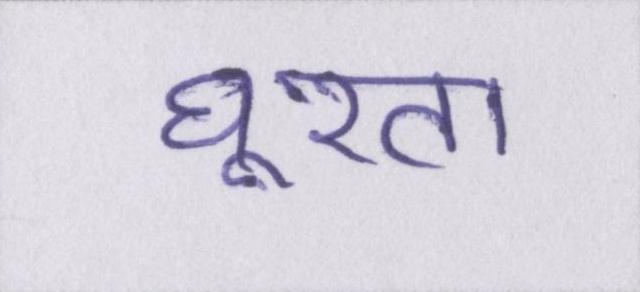 घूरता